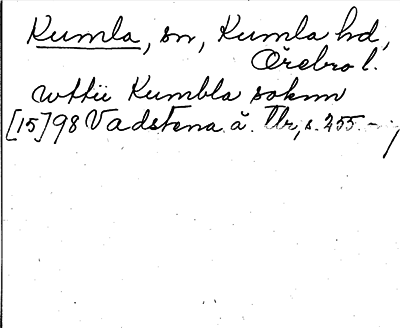 Kumla, sn, Kumla hd,
Örebro l.
wttii Kumbla soknn
[15]98 Vadstena ä. Tbr, s. 255.